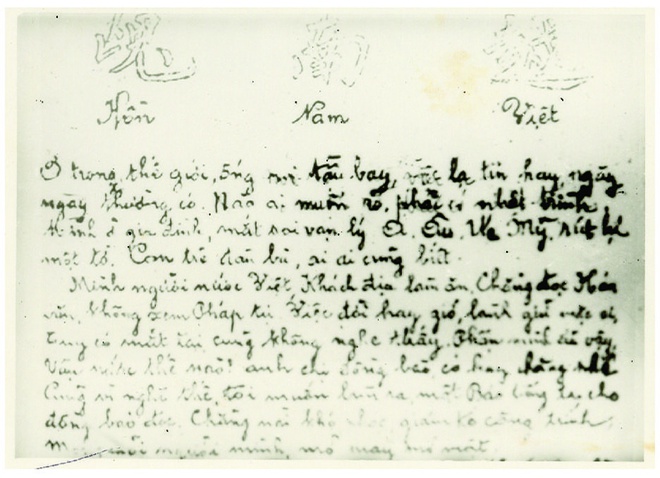 Hồn Nam Việt
Ở trong thế giới, tầu bay, việc lạ tin hay, ngày
ngày thường có. Nào ai muốn rõ, phải có nhất trình
ở gia đình, mắt soi vạn lý Á. Âu. Úc. Mỹ, rút lại
một tờ. Con trẻ đàn bà, ai ai cũng biết.
Mình người nước Việt Khách địa làm ăn. Chẳng đọc Hán
văn, không xem Pháp tự. Việc đời hay giở, lành giữ
có mắt tai cũng không nghe thấy. Phần mình đã vậy,
Vận nước thế nào? anh chị đồng bào có hay chăng
Cũng vì nghĩ thế, tôi muốn ra một cho
đồng bào đọc. Chẳng nài khó nhọc, công trình
người mình, mở mắt.